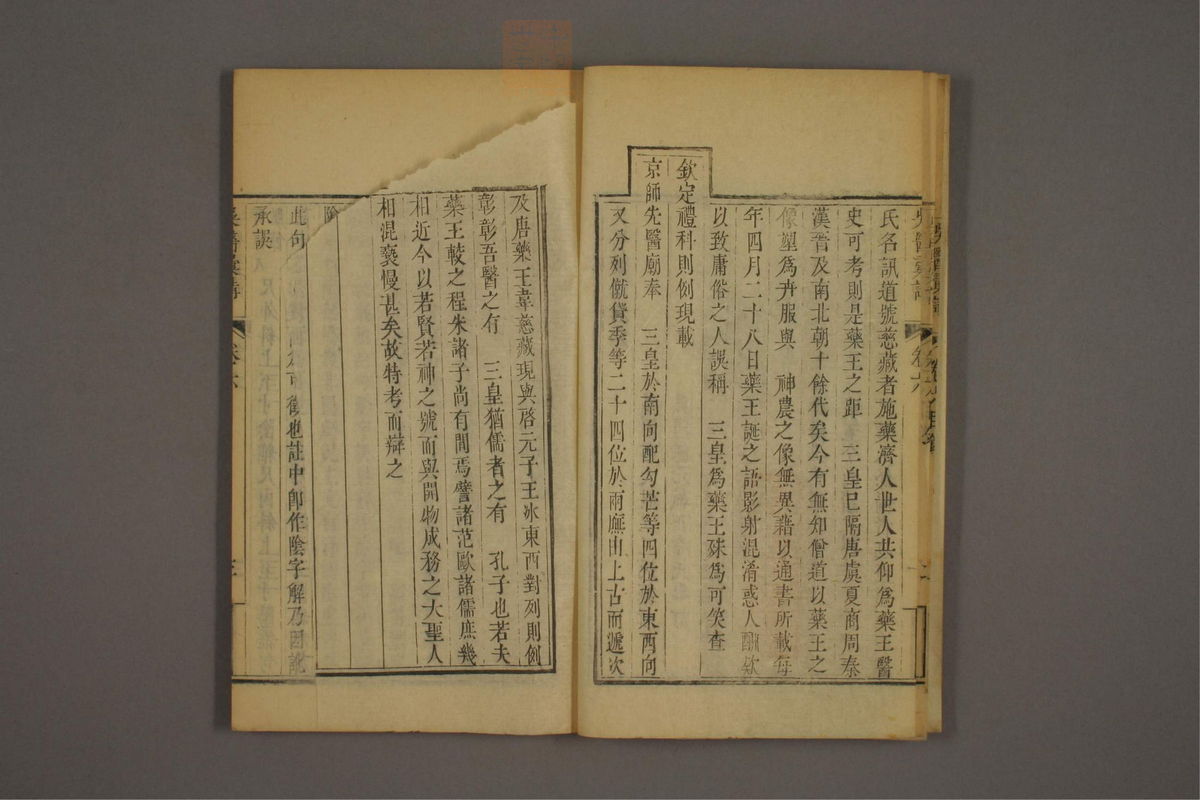 氏名訊道號慈藏者施藥濟人世人共仰爲藥王醫
史可考則是藥王之距　三皇已隔唐虞夏商周秦
漢晉及南北朝十餘代矣今有無知僧道以藥王之
像塑爲卉服與　神農之像無異藉以通書所載每
年四月二十八日藥王誕之語影射混淆惑人酬欸
以致庸俗之人誤稱　三皇爲藥王殊爲可笑查
欽定禮科則例現載
京師先醫廟奉　三皇於南向配勾芒等四位於東西向
又分列僦貸季等二十四位於兩廡由上古而遞次
及唐藥王韋慈藏現與啓元子王冰東西對列則例
彰彰吾醫之有　三皇猶儒者之有　孔子也若夫
藥王較之程朱諸子尚有間焉譬諸范歐諸儒庶幾
相近今以若賢若神之號而與開物成務之大聖人
相混褻慢甚矣故特考而辯之
陰
此句
也註中卽作陰字解乃因訛
承誤
吳醫彙講
卷六